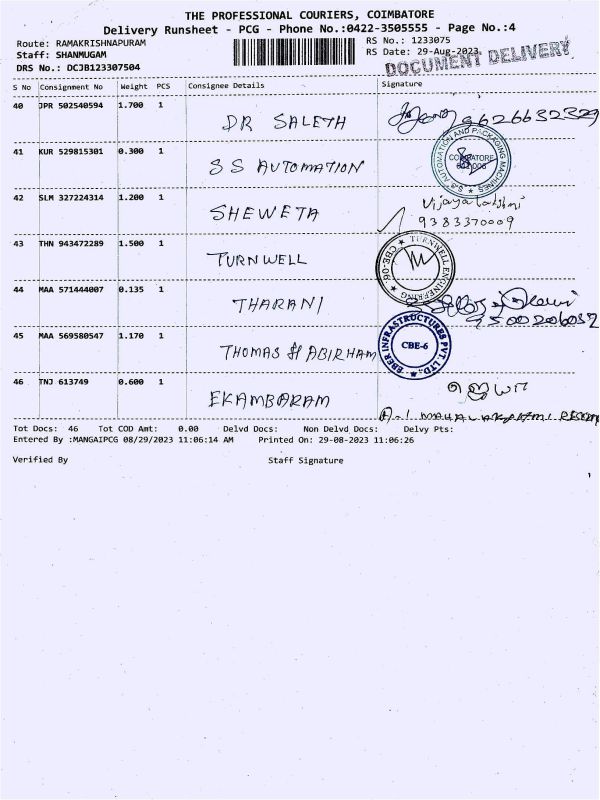 THE PROFESSIONAL COURIERS, COIMBATORE
Delivery Runsheet - PCG - Phone No.:0422-3505555 - Page No.:4
Route: RAMAKRISHNAPURAM
Staff: SHANMUGAM
DRS No.: DCJB123307504
RS No.: 1233075
RS Date: 29-Aug-2023
DOCUMENT DELIVERY
S No Consignment No Weight PCS Consignee Details Signature
40 JPR 502540594 1.700 1 DR SALETH
41 KUR 529815301 0.300 1 SS AUTOMATION
S-S AUTOMATION AND PACKAGING MACHINES COIMBATORE
42 SLM 327224314 1.200 1 SHEWETA Vijayalakshmi
9383370009
43 THN 943472289 1.500 1 TURNWELL
TURNWELL ENGINEERING CBE-06
44 MAA 571444007 0.135 1 THARANI
9500206032
45 MAA 569580547 1.170 1 THOMAS ABIRHAM
EBER INFRASTRUCTURES PVT. LTD. CBE-6
46 TNJ 613749 0.600 1 EKAMBARAM
Tot Docs: 46 Tot COD Amt: 0.00 Delvd Docs: Non Delvd Docs: Delvy Pts:
Entered By :MANGAIPCG 08/29/2023 11:06:14 AM Printed On: 29-08-2023 11:06:26
Verified By Staff Signature